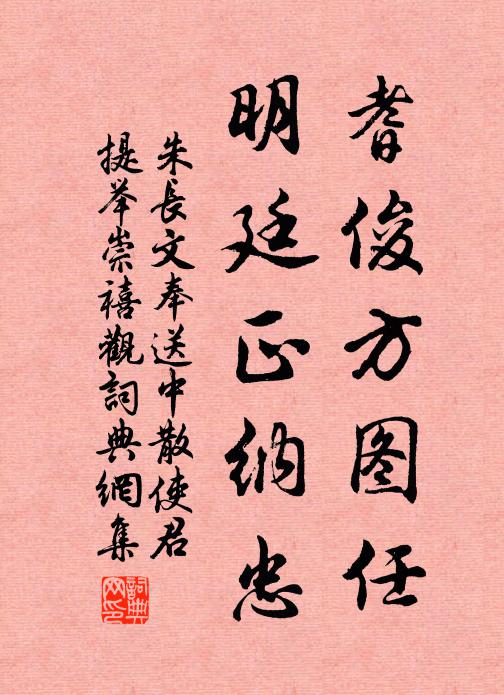 耆俊方图任
明廷正纳忠
朱長文奉送中散使君
提举崇禧觀詞典網集
詞典網印